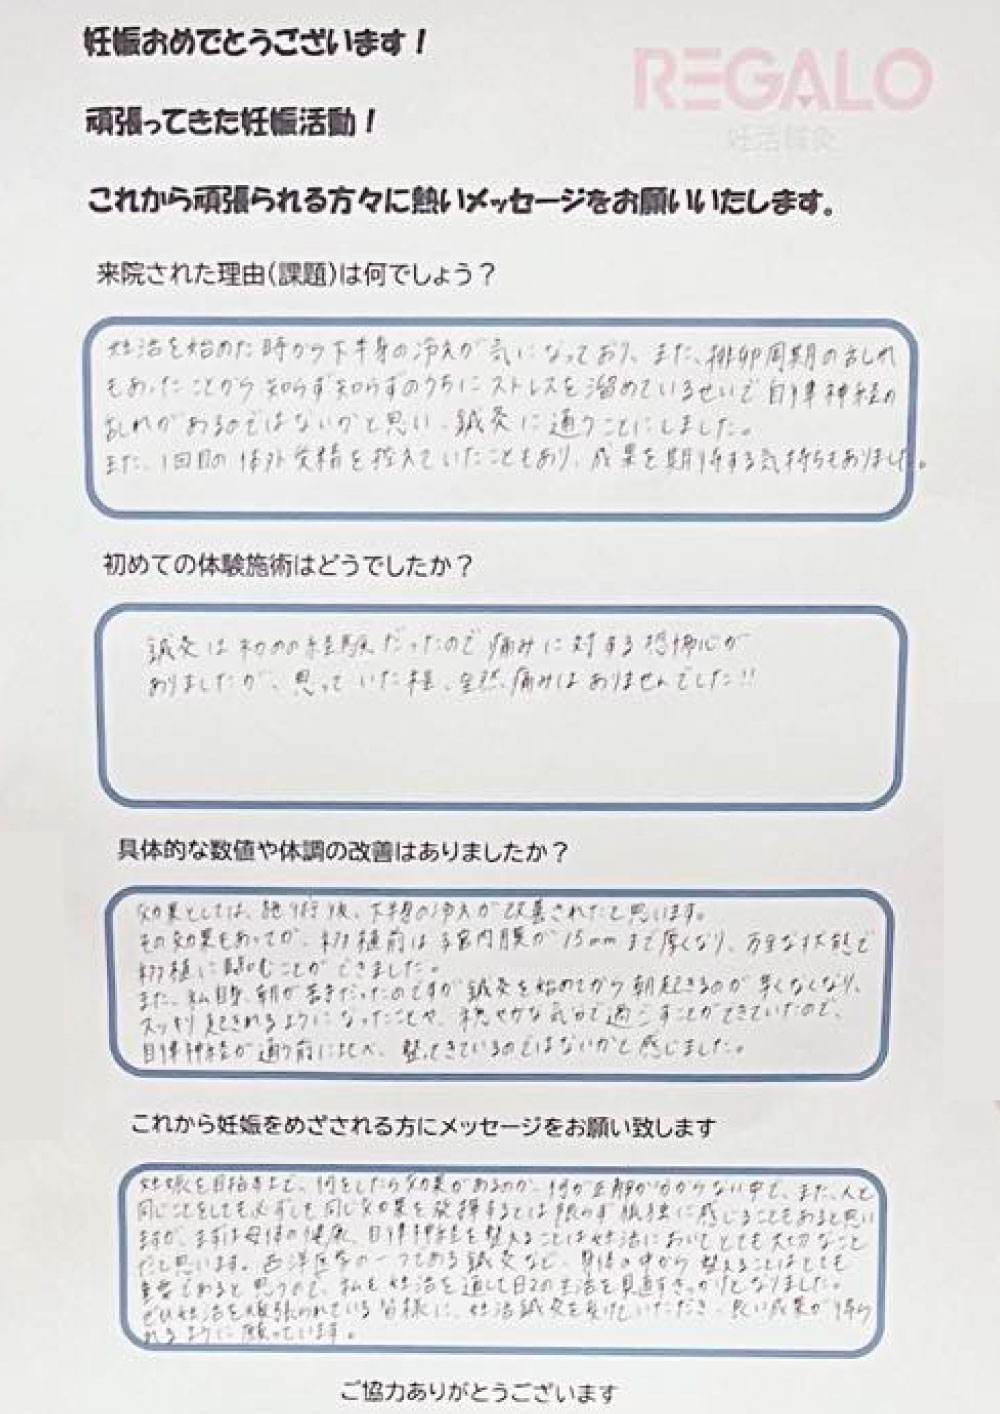 妊娠おめでとうございます！
REGALO
妊活鍼灸
頑張ってきた妊娠活動！
これから頑張られる方々に熱いメッセージをお願いいたします。
来院された理由(課題)は何でしょう？
妊活を始めた時から下半身の冷えが気になっており、また、排卵周期の乱れ
もあったことから知らず知らずのうちにストレスを溜めているせいで自律神経の
乱れがあるのではないかと思い、鍼灸に通うことにしました。
また、1回目の体外受精を控えていたこともあり、成果を期待する気持ちもありました。
初めての体験施術はどうでしたか？
鍼灸は初めの経験だったので痛みに対する恐怖心が
ありましたが、思っていた程、全然痛みはありませんでした!!
具体的な数値や体調の改善はありましたか？
効果としては、施術後、下半身の冷えが改善されたと思います。
その効果もあってか、移植前は子宮内膜が15mmまで厚くなり、万全な状態で
移植に臨むことができました。
また、私自身、朝が苦手だったのですが鍼灸を始めてから朝起きるのが辛くなくなり、
スッキリ起きれるようになったことや、穏やかな気分で過ごすことができていたので、
自律神経が通う前に比べ、整ってきているのではないかと感じました。
これから妊娠をめざされる方にメッセージをお願い致します
妊娠を目指す上で、何をしたら効果があるのか、何が正解か分からない中で、また、人と
同じことをしても必ずしも同じ効果を発揮するとは限らず孤独に感じることもあると思い
ますが、まずは母体の健康、自律神経を整えることは妊活においてとても大切なこと
だと思います。西洋医学の一つである鍼灸など、身体の中から整えることはとても
重要であると思うので、私も妊活を通して日々の生活を見直すきっかけとなりました。
ぜひ妊活を頑張られている皆様に、妊活鍼灸を受けていただき、良い成果が得ら
れるように願っています。
ご協力ありがとうございます